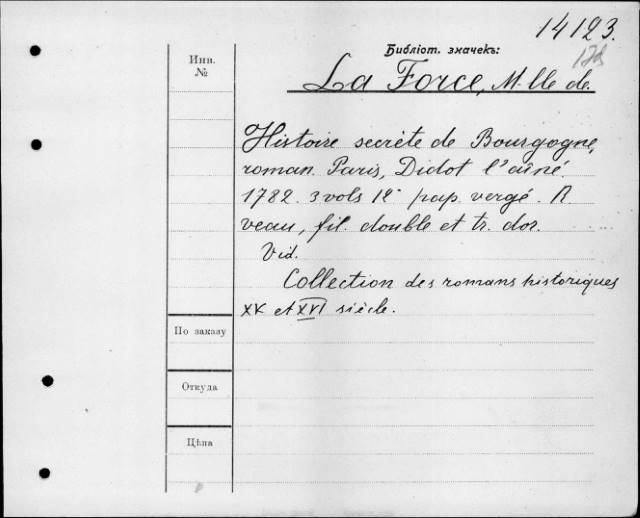 14123.
Библіот. значекъ:
178
Инв.
№
La Force, M-lle de.
Histoire secrète de Bourgogne,
roman. Paris, Didot l'aîné.
1782. 3 vols 12° pap. vergé. R
veau, fil. double et tr. dor.
Vid.
Collection des romans historiques
XV et XVI siècle.
По заказу
Откуда
Цѣна